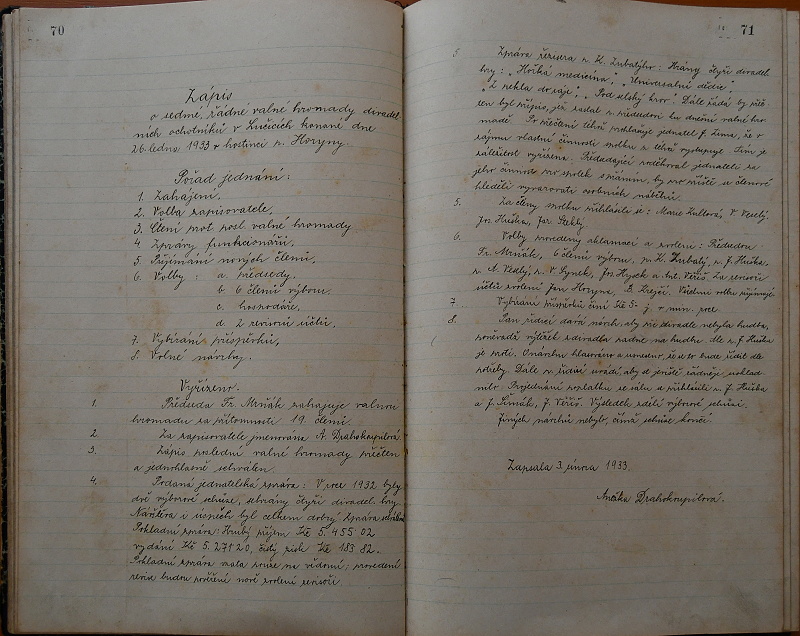 70
Zápis
o sedmé, řádné valné hromady divadel
ních ochotníků v Lučicích konané dne
26. ledna 1933 v hostinci p. Horyny.
Pořad jednání:
1. Zahájení,
2. Volba zapisovatele,
3. Čtení prot. posl. valné hromady
4 Zprávy funkcionářů,
5 Přijímání nových členů,
6. Volby: a. předsedy.
b. 6 členů výboru
c. hospodáře,
d. 2 revisorů účtů,
7. Vybírání příspěvků,
8. Volné návrhy.
Vyřízeno.
1. Předseda Fr. Mrňák zahajuje valnou
hromadu za přítomnosti 19. členů.
2. Za zapisovatele jmenována A. Drahokoupilová
3. Zápis poslední valné hromady přečten
a jednohlasně schválen
4. Podaná jednatelská zpráva: V roce 1932 byly
dvě výborové schůze, sehrány čtyři divadel. hry.
Návštěva i úspěch byl celkem dobrý, zpráva schválena
Pokladní zpráva: Hrubý příjem Kč 5.455 02
vydání Kč 5.271 20, čistý zisk Kč 183 82.
Pokladní zpráva vzata pouze na vědomí; provedení
revise budou pověřeni nově zvolení revisoři.
71
Zpráva režiséra p. K. Zubatého: Hrány čtyři divadel.
hry: "Hořká medicina", "Universální dědic",
"Z pekla do ráje", "Pod
Dále žádá by přeč
ten byl přípis, jež zaslal p. předsedovi ku dnešní valné hro
madě. Po přečtení téhož prohlašuje jednatel J. Zima, že v
zájmu vlastní činnosti spolku z téhož vystupuje. Tím je
záležitost vyřízena. Předsedající poděkoval jednateli za
jeho činnost pro spolek
by pro příště se členové
hleděli vyvarovati osobních
5. Za členy spolku přihlásili se: Marie Kultová, V. Veselý.
Jos. Huška, Jar. Steklý
6. Volby provedeny aklamací a zvoleni: Předsedou
Fr. Mrňák, 6 členů výboru, p. K. Zubatý, p. J. Huška,
p. A. Veselý, p. V. Synek, Jos. Hysek a Ant. Věříš. Za revisory
účtů zvoleni Jan Horyna, B. Krejčí. Všichni volbu přijímají.
7. Vybírání příspěvků činí Kč 5.- j. v min. roce.
8. Pan řídící dává návrh, aby při divadle nebyla hudba,
poněvadž výtěžek z divadla padne na hudbu. dle p. J. Huška
je proti.
a usneseno, že se to bude řídit dle
potřeby. Dále p. řídící uvádí, aby
pořádněji
Projednáno
a přihlásili p. J. Huška
a J. Šimák, J. Věříš. Výsledek sdělí výborové schůzi.
Jiných návrhů nebylo, čímž schůze končí.
Zapsala 3. února 1933.
Anežka Drahokoupilová.